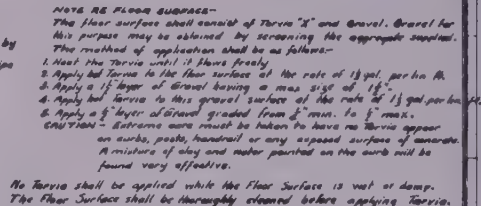 NOTE RE FLOOR SURFACE-
The floor surface shall consist of Tarvia "X" and Gravel. Gravel for
this purpose may be obtained by screening the aggregate supplied.
by
The method of application shall be as follows:-
1. Heat the Tarvia until it flows freely
2. Apply hot Tarvia to the floor surface at the rate of 1½ gal. per lin ft.
3. Apply a 1½" layer of Gravel having a max size of 1½".
4. Apply hot Tarvia to this gravel surface at the rate of 1½ gal. per lin. ft.
5. Apply a ½" layer of Gravel graded from min. to max.
CAUTION - Extreme care must be taken to have no Tarvia appear
on curbs, posts, handrail or any exposed surface of concrete.
A mixture of clay and water painted on the curb will be
found very effective.
No Tarvia shall be applied while the Floor Surface is wet or damp.
The Floor Surface shall be thoroughly cleaned before applying Tarvia.